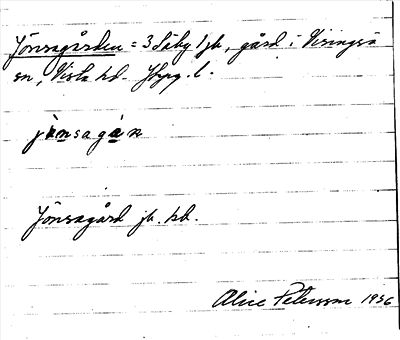 Jönsagården = 3 Säby 1 jb, gård i Visingsö
sn, Vista hd. Jkpg. l.
jȯnsagȧn
Jönsagård jb. kb.
Alice Petersson 1936